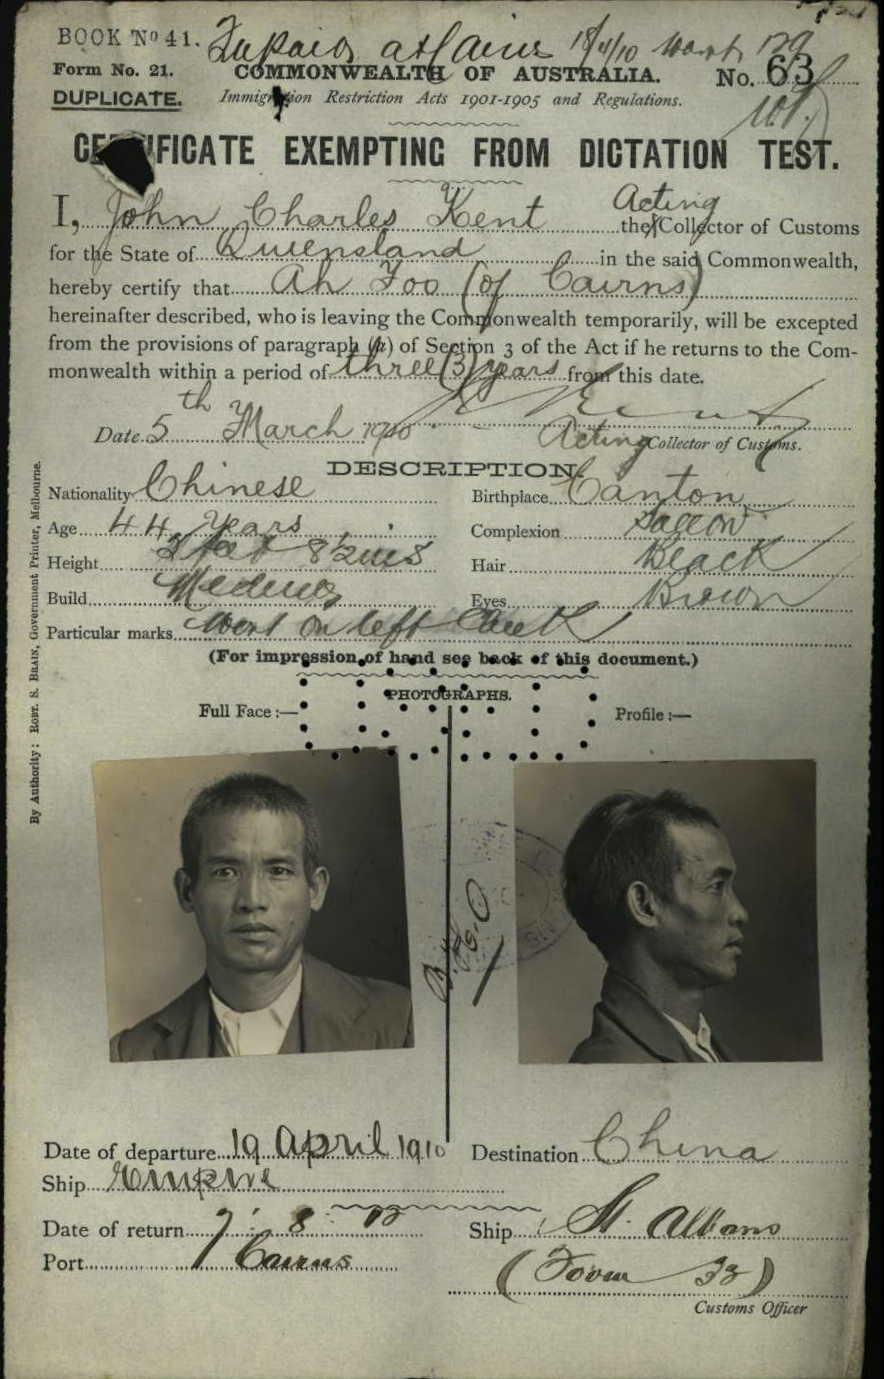 BOOK No 41.
Form No. 21.
DUPLICATE.
COMMONWEALTH OF AUSTRALIA.
No. 63
Immigration Restriction Acts 1901-1905 and Regulations.
CERTIFICATE EXEMPTING FROM DICTATION TEST.
I, John Charles Kent the Acting Collector of Customs
for the State of Queensland in the said Commonwealth,
hereby certify that Ah Foo (of Cairns)
hereinafter described, who is leaving the Commonwealth temporarily, will be excepted
from the provisions of paragraph (a) of Section 3 of the Act if he returns to the Com-
monwealth within a period of three (3) years from this date.
Date 5th March 1910
Acting Collector of Customs.
DESCRIPTION.
Nationality Chinese Birthplace Canton
Age 44 Years Complexion Sallow
Height 5 feet 8½ ins Hair Black
Build Medium Eyes Brown
Particular marks Wart on left Cheek
(For impression of hand see back of this document.)
PHOTOGRAPHS.
Full Face :— Profile :—
By Authority: ROBT. S. BRAIN, Government Printer, Melbourne.
Date of departure 19 April 1910 Destination China
Ship Empire
Date of return 7 : 8 : 12 Ship St. Albans
Port Cairns (Form 32)
Customs Officer